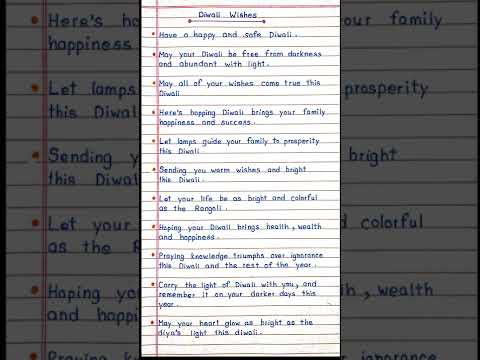 Diwali Wishes
Have a happy and safe Diwali.
May your Diwali be free from darkness
and abundant with light.
May all of your wishes come true this
Diwali
Here's hopping Diwali brings your family
happiness and success.
Let lamps guide your family to prosperity
this Diwali
Sending you warm wishes and bright
this Diwali.
Let your life be as bright and colorful
as the Rangoli.
Hoping your Diwali brings health, wealth
and happiness.
Praying knowledge triumphs over ignorance
this Diwali and the rest of the year.
Carry the light of Diwali with you, and
remember it on your darker days this
year.
May your heart glow as bright as the
diya's light this diwali.
Here's h
happiness
Let lamps
this Diwali
Sending
this Diwali
Let your
as the R
Hoping you
and happ
Praying
your family
prosperity
bright
colorful
, wealth
ignorance